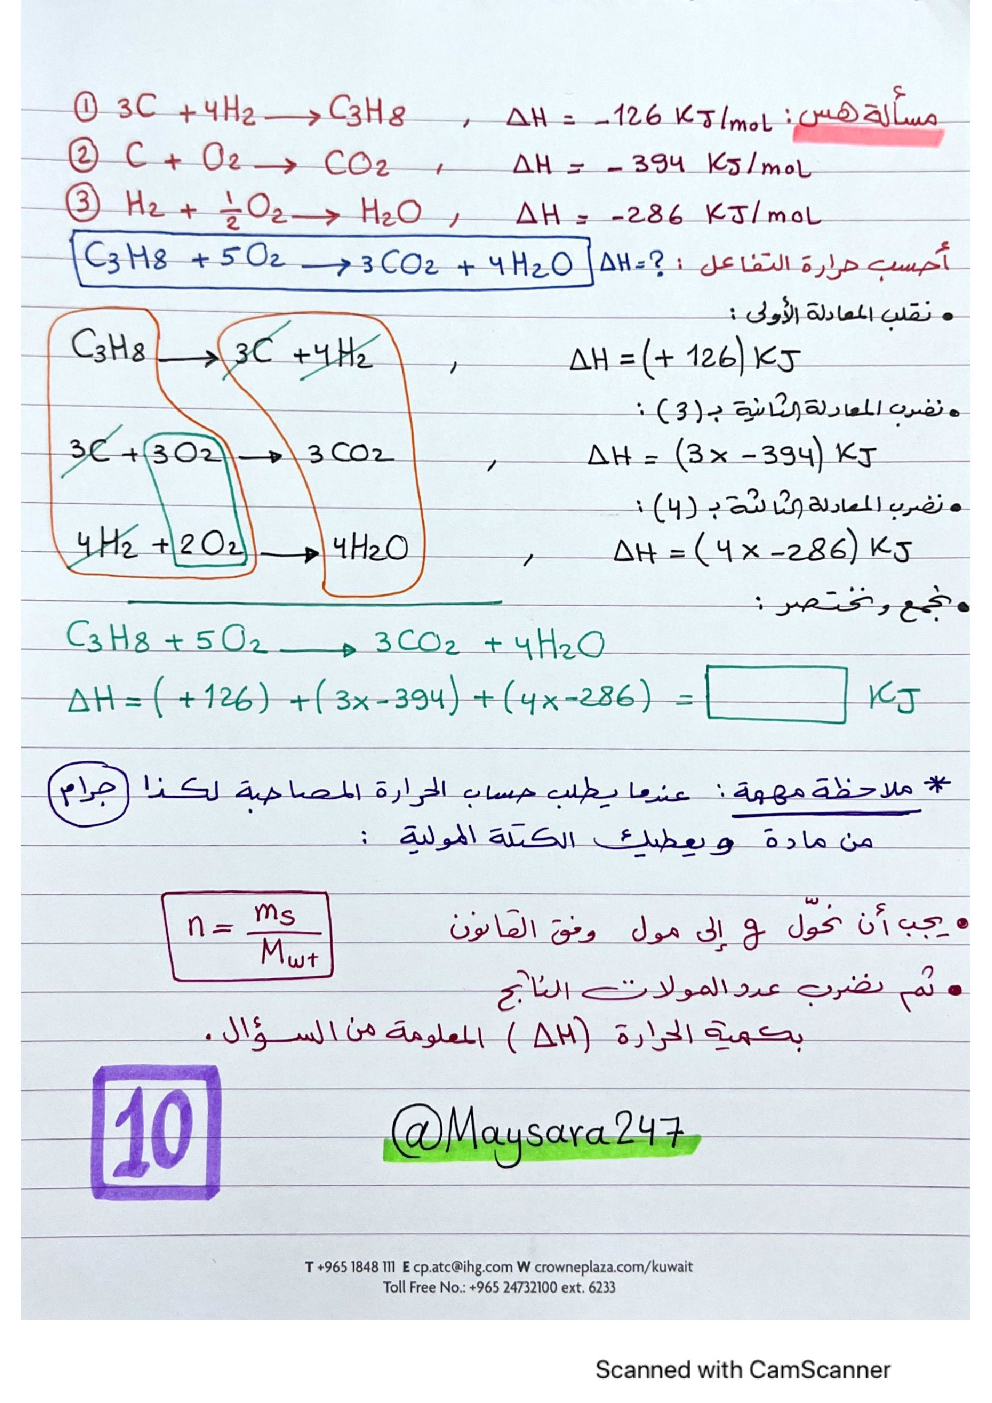 مسألة هس: ① 3C + 4H₂ ⟶ C₃H₈ , ΔH = -126 KJ/mol
② C + O₂ ⟶ CO₂ , ΔH = - 394 KJ/mol
③ H₂ + ½O₂ ⟶ H₂O , ΔH = -286 KJ/mol
أحسب حرارة التفاعل : C₃H₈ + 5O₂ ⟶ 3CO₂ + 4H₂O ΔH=?
• نقلب المعادلة الأولى :
C₃H₈ ⟶ 3C + 4H₂ , ΔH = (+ 126) KJ
• نضرب المعادلة الثانية بـ (3) :
3C + 3O₂ ⟶ 3CO₂ , ΔH = (3x - 394) KJ
• نضرب المعادلة الثالثة بـ (4) :
4H₂ + 2O₂ ⟶ 4H₂O , ΔH = (4x -286) KJ
• نجمع ونختصر :
C₃H₈ + 5O₂ ⟶ 3CO₂ + 4H₂O
ΔH = (+126) + (3x-394) + (4x-286) = KJ
* ملاحظة مهمة : عندما يطلب حساب الحرارة المصاحبة لكذا جرام
من مادة ويعطيك الكتلة المولية :
• يجب أن نحوّل g إلى مول وفق القانون n = ms / Mwt
• ثم نضرب عدد المولات الناتج
بكمية الحرارة (ΔH) المعلومة من السؤال .
10
@Maysara247
T +965 1848 111 E cp.atc@ihg.com W crowneplaza.com/kuwait
Toll Free No.: +965 24732100 ext. 6233
Scanned with CamScanner